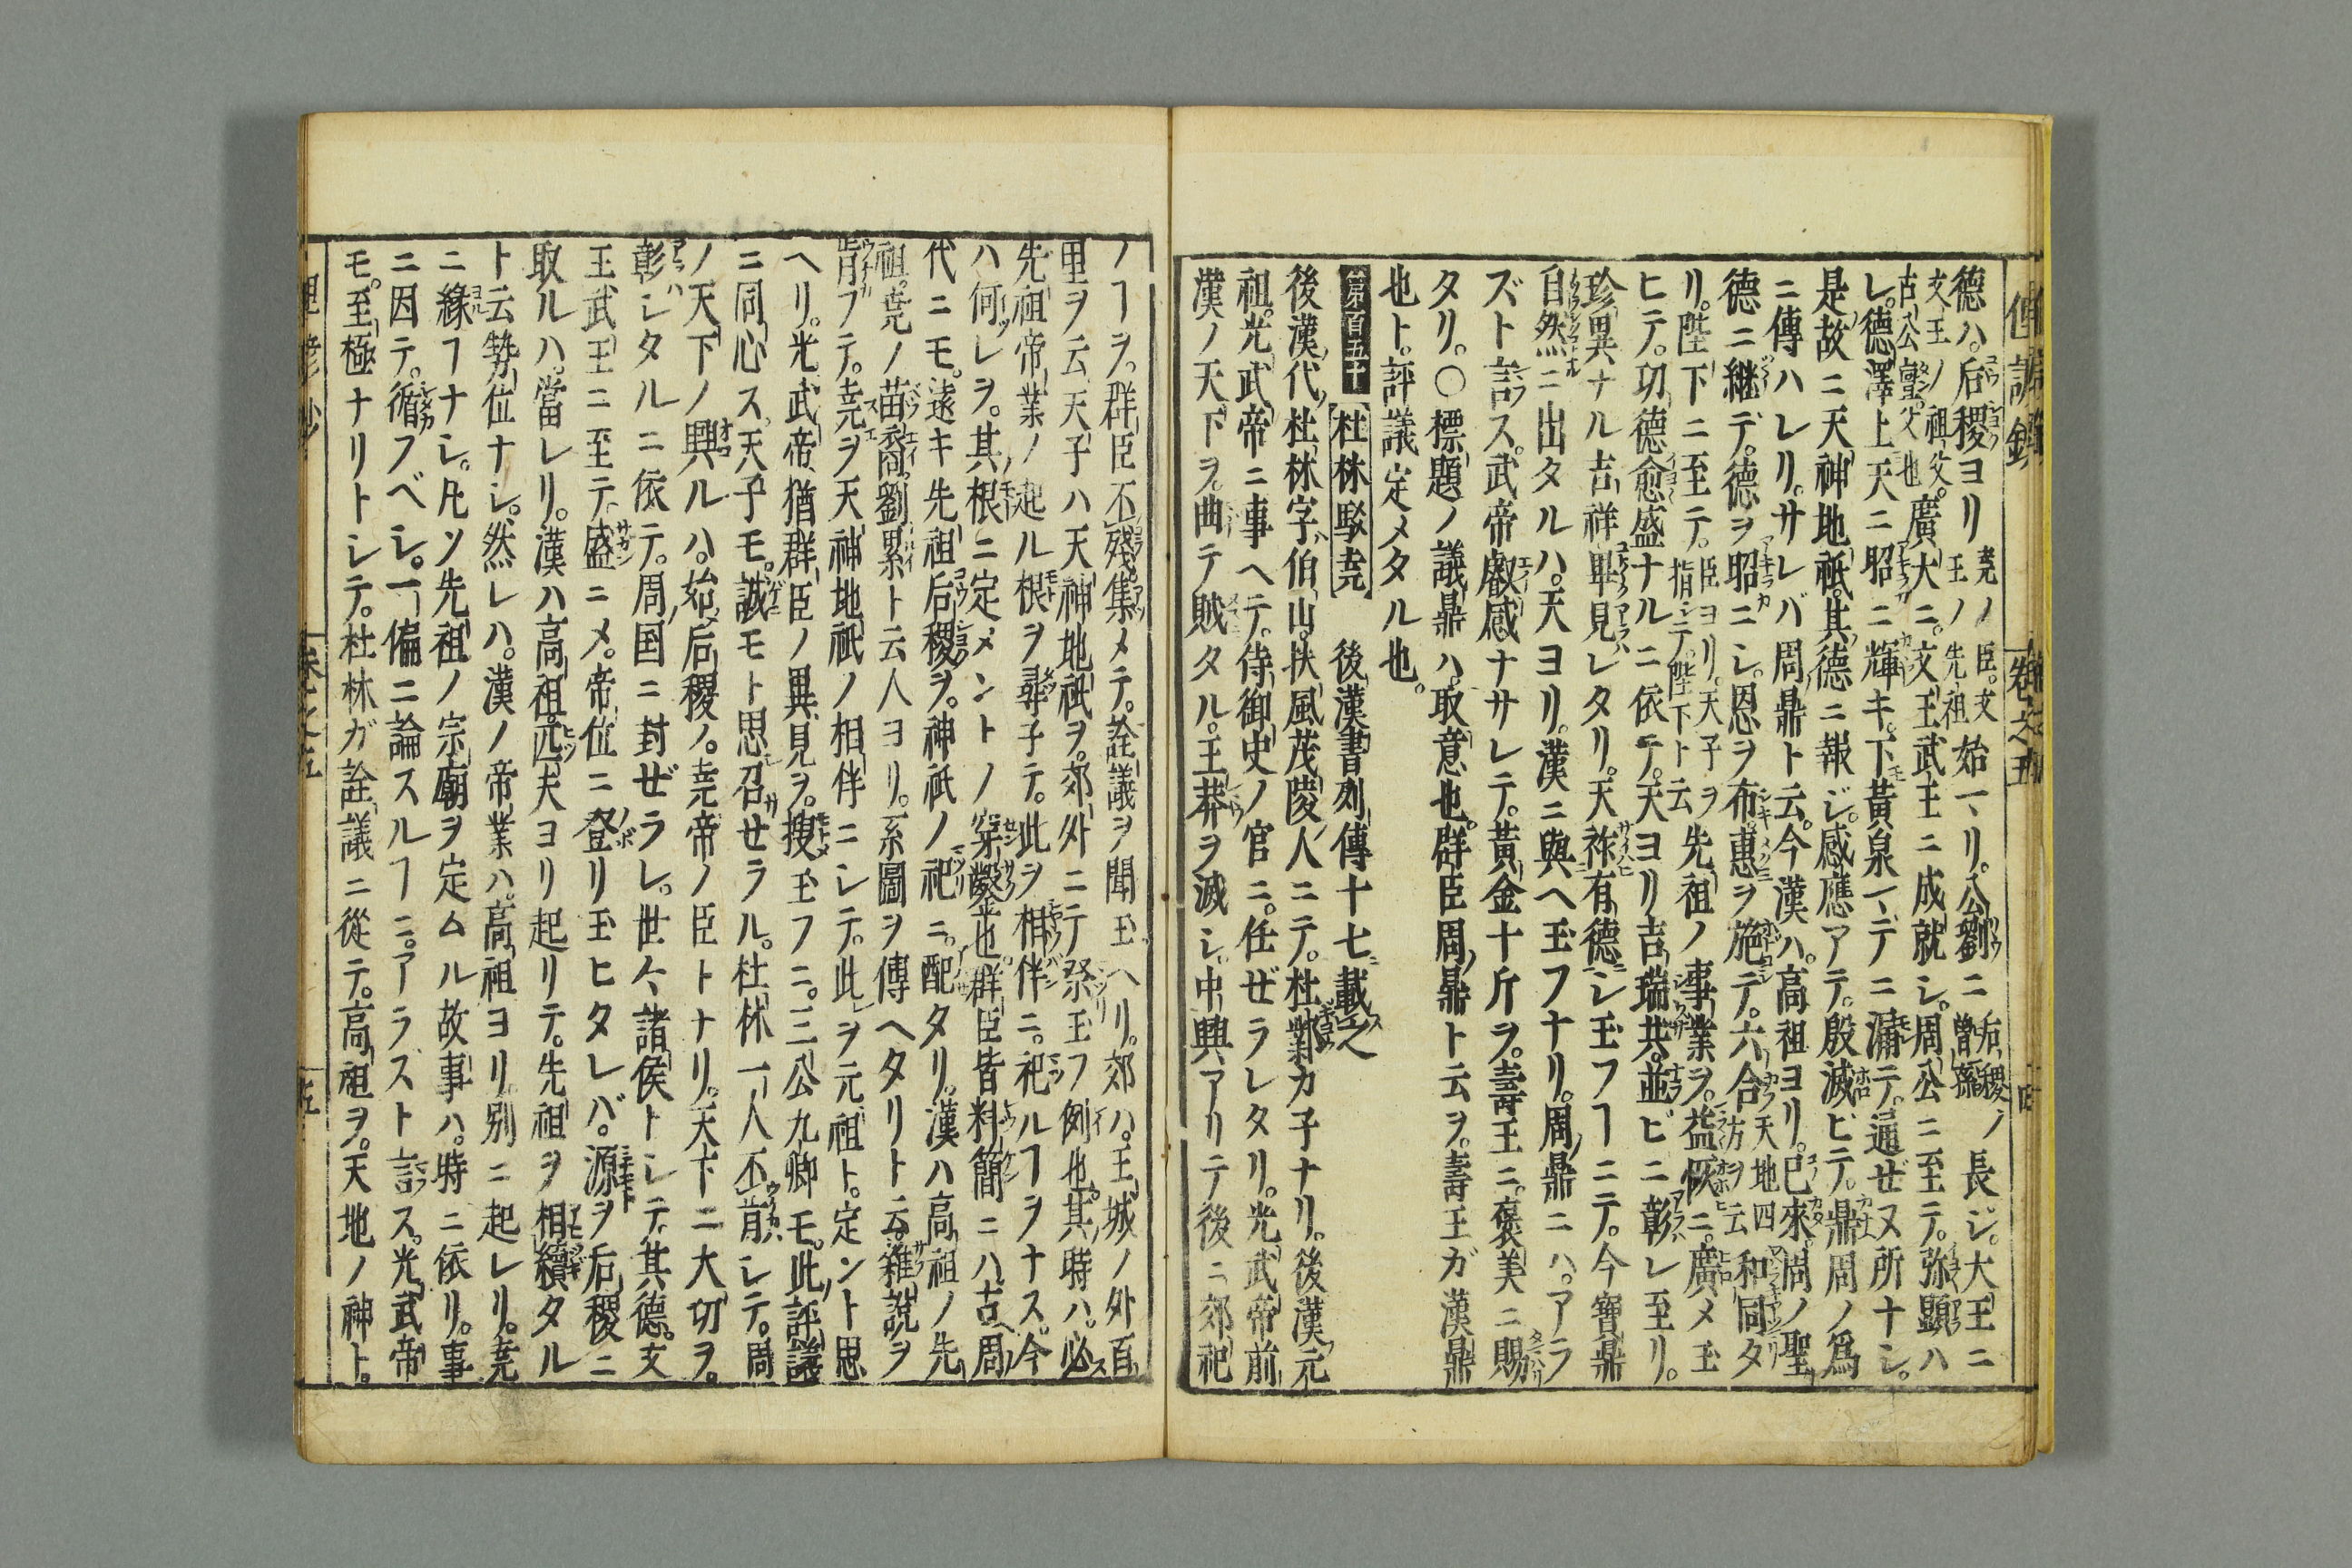 德ハ。后稷ヨリ 尭ノ臣。文王ノ先祖 始マリ。公劉ニ 后稷ノ曽孫 長シ。大王ニ
文王ノ祖父。古公亶父也 廣大ニ。文王武王ニ成就シ。周公ニ至テ。弥顯ハ
レ。德澤上天ニ昭ニ輝キ。下黃泉マデニ漏テ。通ゼヌ所ナシ。
是故ニ天神地祇。其德ニ報ジ。感應アテ。殷滅ビテ。鼎周ノ爲
ニ傳ハレリ。サレバ周鼎ト云。今漢ハ。高祖ヨリ。已來。周ノ聖
德ニ継デ。德ヲ昭ニシ。恩ヲ布。惠ヲ施テ。六合 天地四方ヲ云 和同タ
リ。陛下ニ至テ。 臣ヨリ。天子ヲ指シテ。陛下ト云 先祖ノ事業ヲ。益恢ニ。廣メ玉
ヒテ。功德愈盛ナルニ依テ。天ヨリ吉瑞共。並ビニ彰レ至リ。
珍異ナル吉祥畢見レタリ。天祚有德ニシ玉フヿニテ。今寶鼎
自然ニ出タルハ。天ヨリ。漢ニ與ヘ玉フナリ。周鼎ニハ。アラ
ズト言ス。武帝叡感ナサレテ。黃金十斤ヲ。壽王ニ。褒美ニ賜
タリ。〇標題ノ議鼎ハ。取意也。群臣周鼎ト云ヲ。壽王ガ漢鼎
也ト。評議定メタル也。
第百五十 杜林駁尭 後漢書列傳十七載之
後漢代杜林字伯山。扶風茂陵人ニテ。杜鄴カ子ナリ。後漢元
祖。光武帝ニ事ヘテ。侍御史ノ官ニ。任ゼラレタリ。光武帝前
漢ノ天下ヲ。曲テ賊タル。王莽ヲ滅シ。中興アリテ後ニ郊祀
ノヿヲ。群臣不殘集メテ。詮議ヲ聞玉ヘリ。郊ハ。王城ノ外百
里ヲ云天子ハ天神地祇ヲ。郊外ニテ祭玉フ例也。其時ハ。必
先祖帝業ノ起ル根ヲ尋子テ。此ヲ相伴ニ。祀ルヿヲナス。今
ハ何レヲ。其根ニ定メントノ穿鑿也。群臣皆料簡ニハ古周
代ニモ。遠キ先祖后稷ヲ。神祇ノ祀ニ。配タリ。漢ハ高祖ノ先
祖。尭ノ苗裔。劉累ト云人ヨリ。系圖ヲ傳ヘタリト云。雜說ヲ
肯フテ。尭ヲ天神地祇ノ相伴ニシテ。此ヲ元祖ト。定ント思
ヘリ。光武帝猶群臣ノ異見ヲ。搜玉フニ。三公九卿モ。此評議
ニ同心ス。天子モ。誠モト思召サセラル。杜林一人不肯シテ。周
ノ天下ノ興ルハ。始后稷ノ。尭帝ノ臣トナリ。天下ニ大切ヲ。
彰シタルニ依テ。周国ニ封ゼラレ。世々諸侯トシテ。其德。文
王武王ニ至テ。盛ニメ。帝位ニ登リ玉ヒタレバ。源ヲ后稷ニ
取ルハ。當レリ。漢ハ高祖。匹夫ヨリ起リテ。先祖ヲ相續タル
ト云勢位ナシ。然レハ。漢ノ帝業ハ。高祖ヨリ。別ニ起レリ。尭
ニ緣フナシ。凡ソ先祖ノ宗廟ヲ定ムル故事ハ。時ニ依リ。事
ニ因テ。循フベシ。一偏ニ論スルヿニ。アラスト言ス。光武帝
モ。至極ナリトシテ。杜林ガ詮議ニ從テ。高祖ヲ。天地ノ神ト。